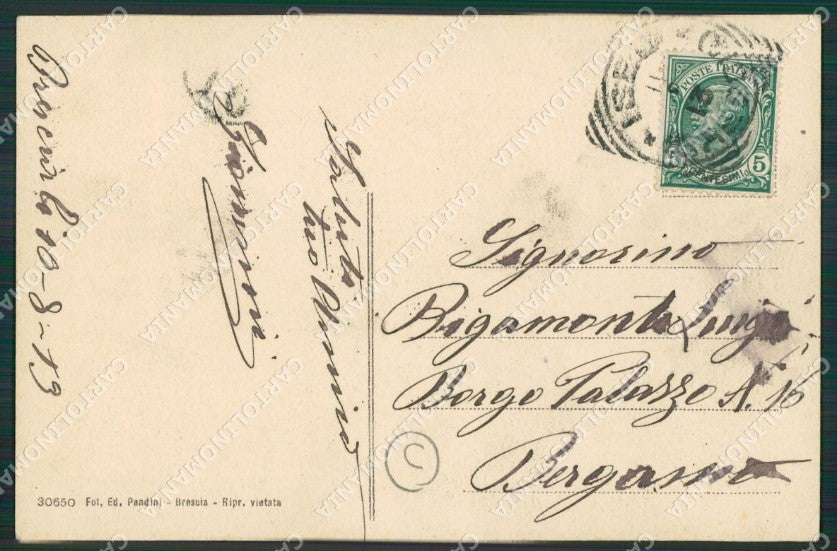 10-8-13
Saluti
tuo Amico
ISEO
POSTE ITALIANE
5
CENTESIMI
Signorino
Bigamonti Luigi
Borgo Palazzo N. 16
Bergamo
C
30650 Fot. Ed. Pandini - Brescia - Ripr. vietata
CARTOLINOMANIA